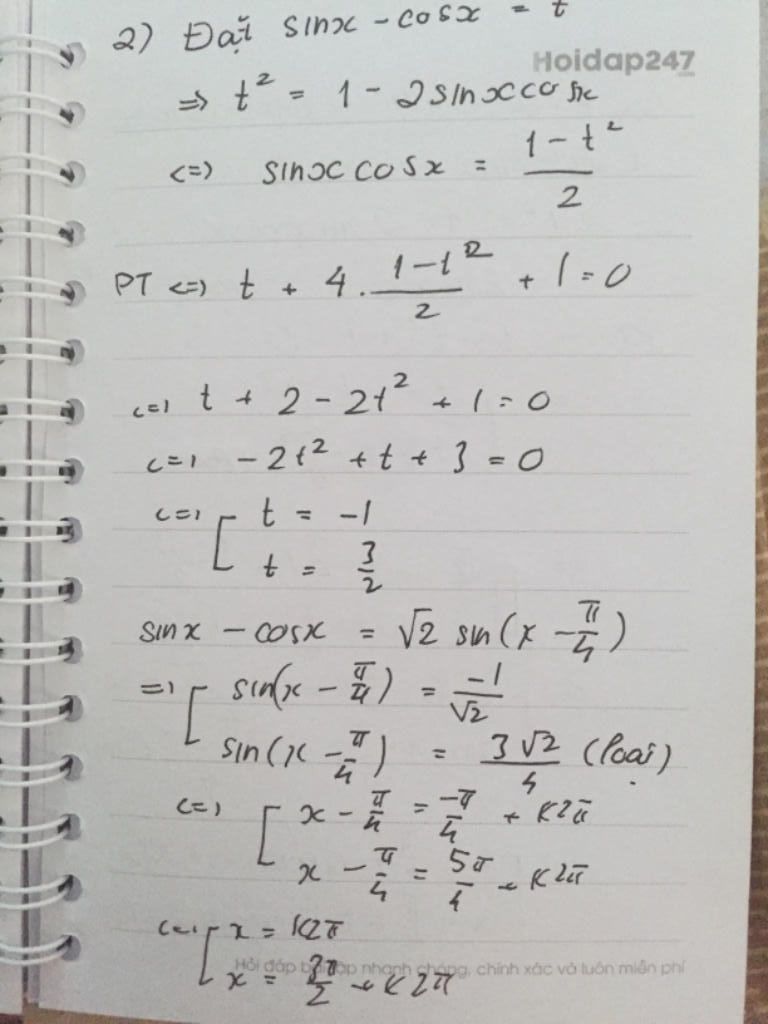 2) Đặt sinx - cosx = t
Hoidap247
=> t² = 1 - 2sinxcosx
<=> sinxcosx = (1 - t²)/2
PT <=> t + 4 . (1 - t²)/2 + 1 = 0
<=> t + 2 - 2t² + 1 = 0
<=> -2t² + t + 3 = 0
<=> [ t = -1
t = 3/2
sinx - cosx = √2 sin(x - π/4)
=> [ sin(x - π/4) = -1/√2
sin(x - π/4) = 3√2/4 (loại)
<=> [ x - π/4 = -π/4 + k2π
x - π/4 = 5π/4 + k2π
<=> [ x = k2π
Hỏi đáp bài tập nhanh chóng, chính xác và luôn miễn phí
x = 3π/2 + k2π